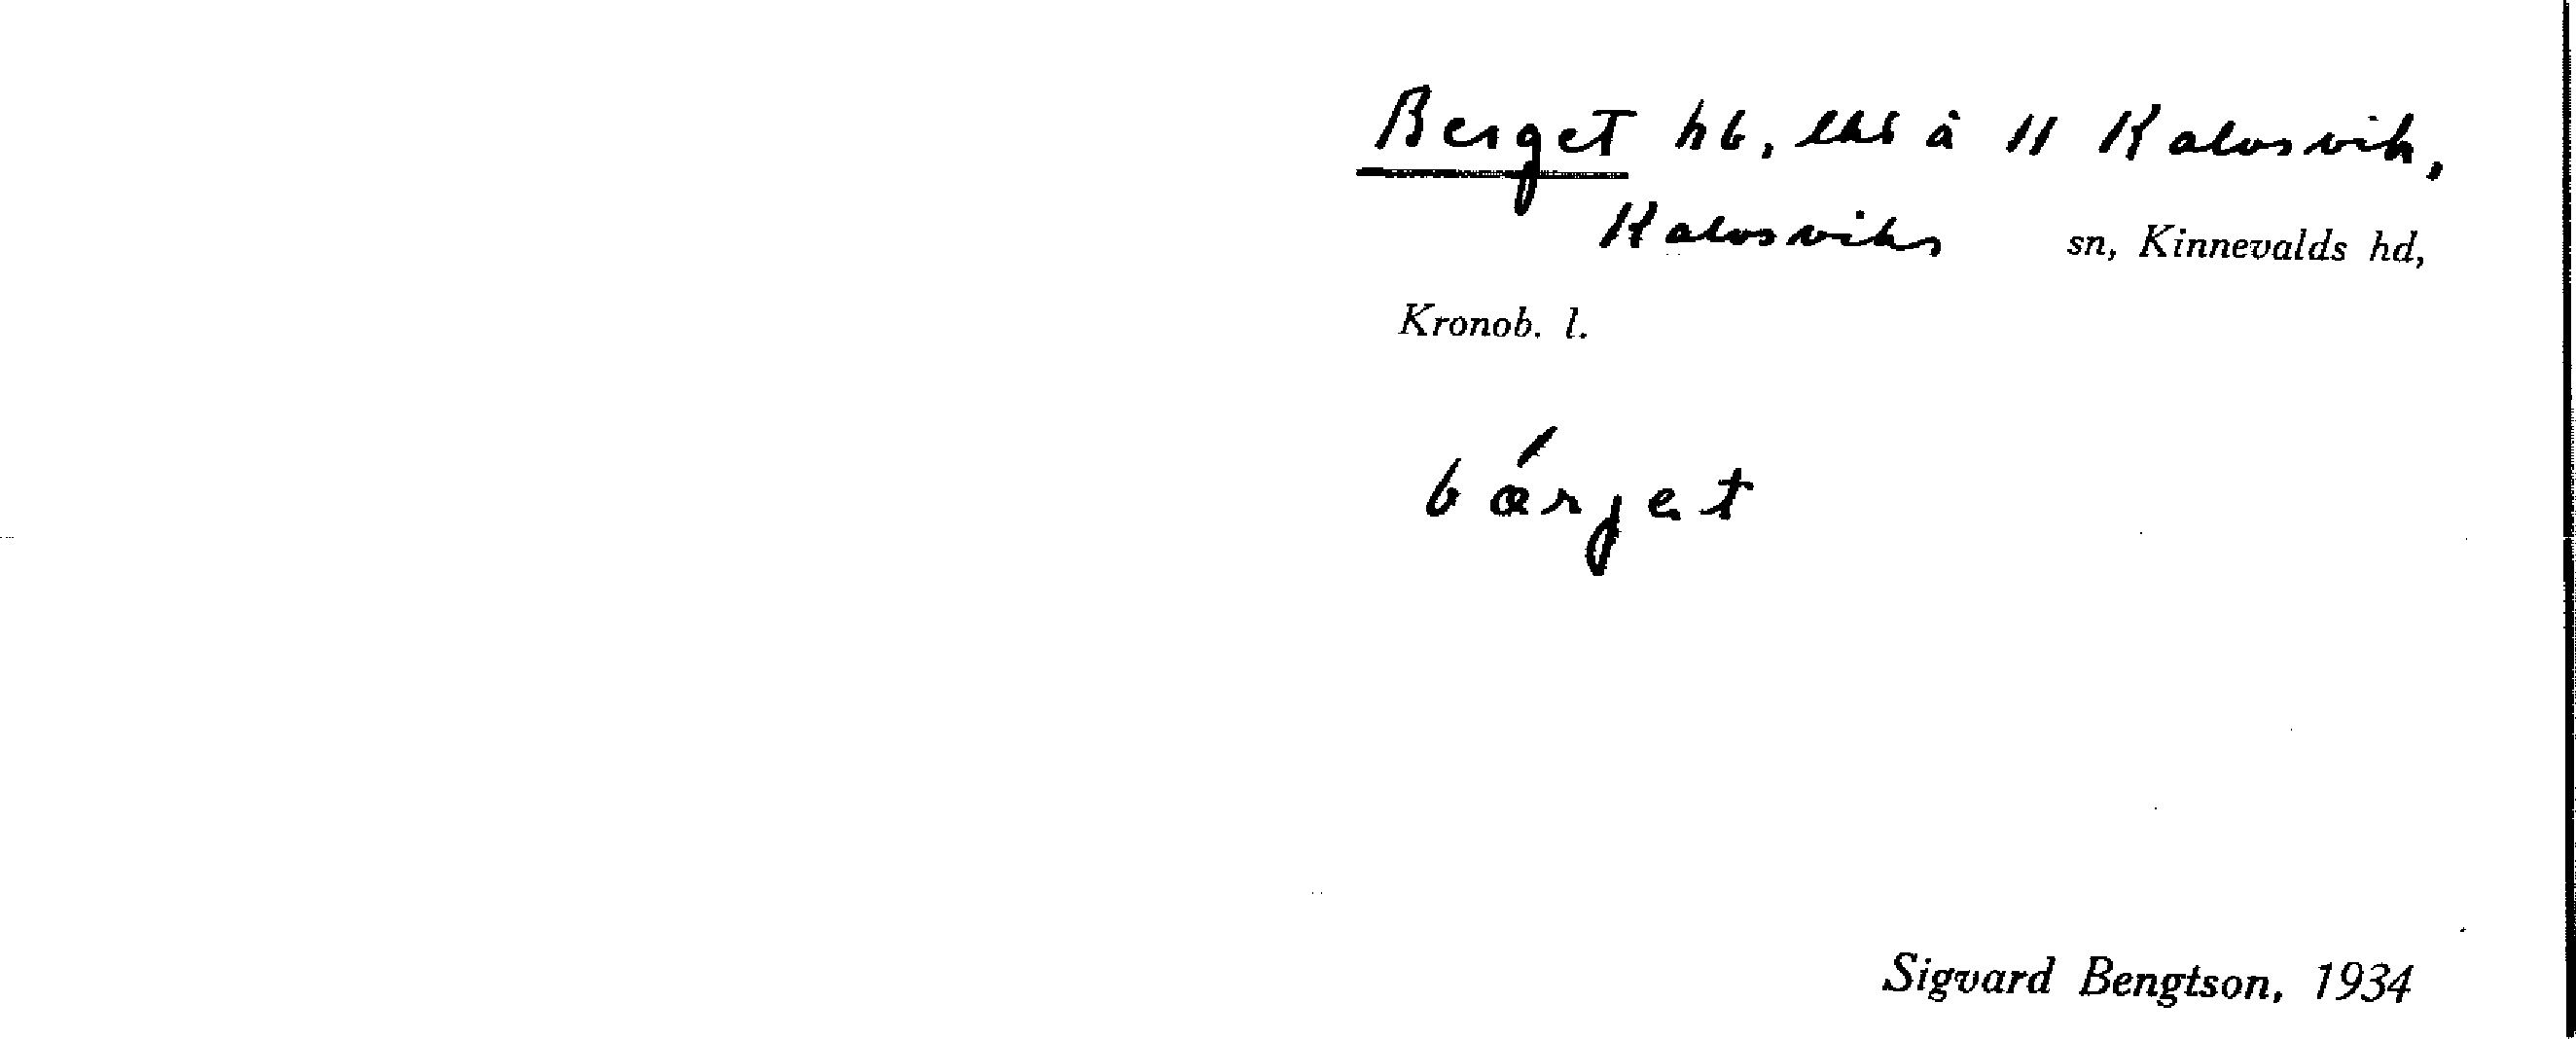 Berget hb, lht å 11 Kalvsvik,
Kalvsviks sn, Kinnevalds hd,
Kronob. l.
bǽrjet
Sigvard Bengtson, 1934